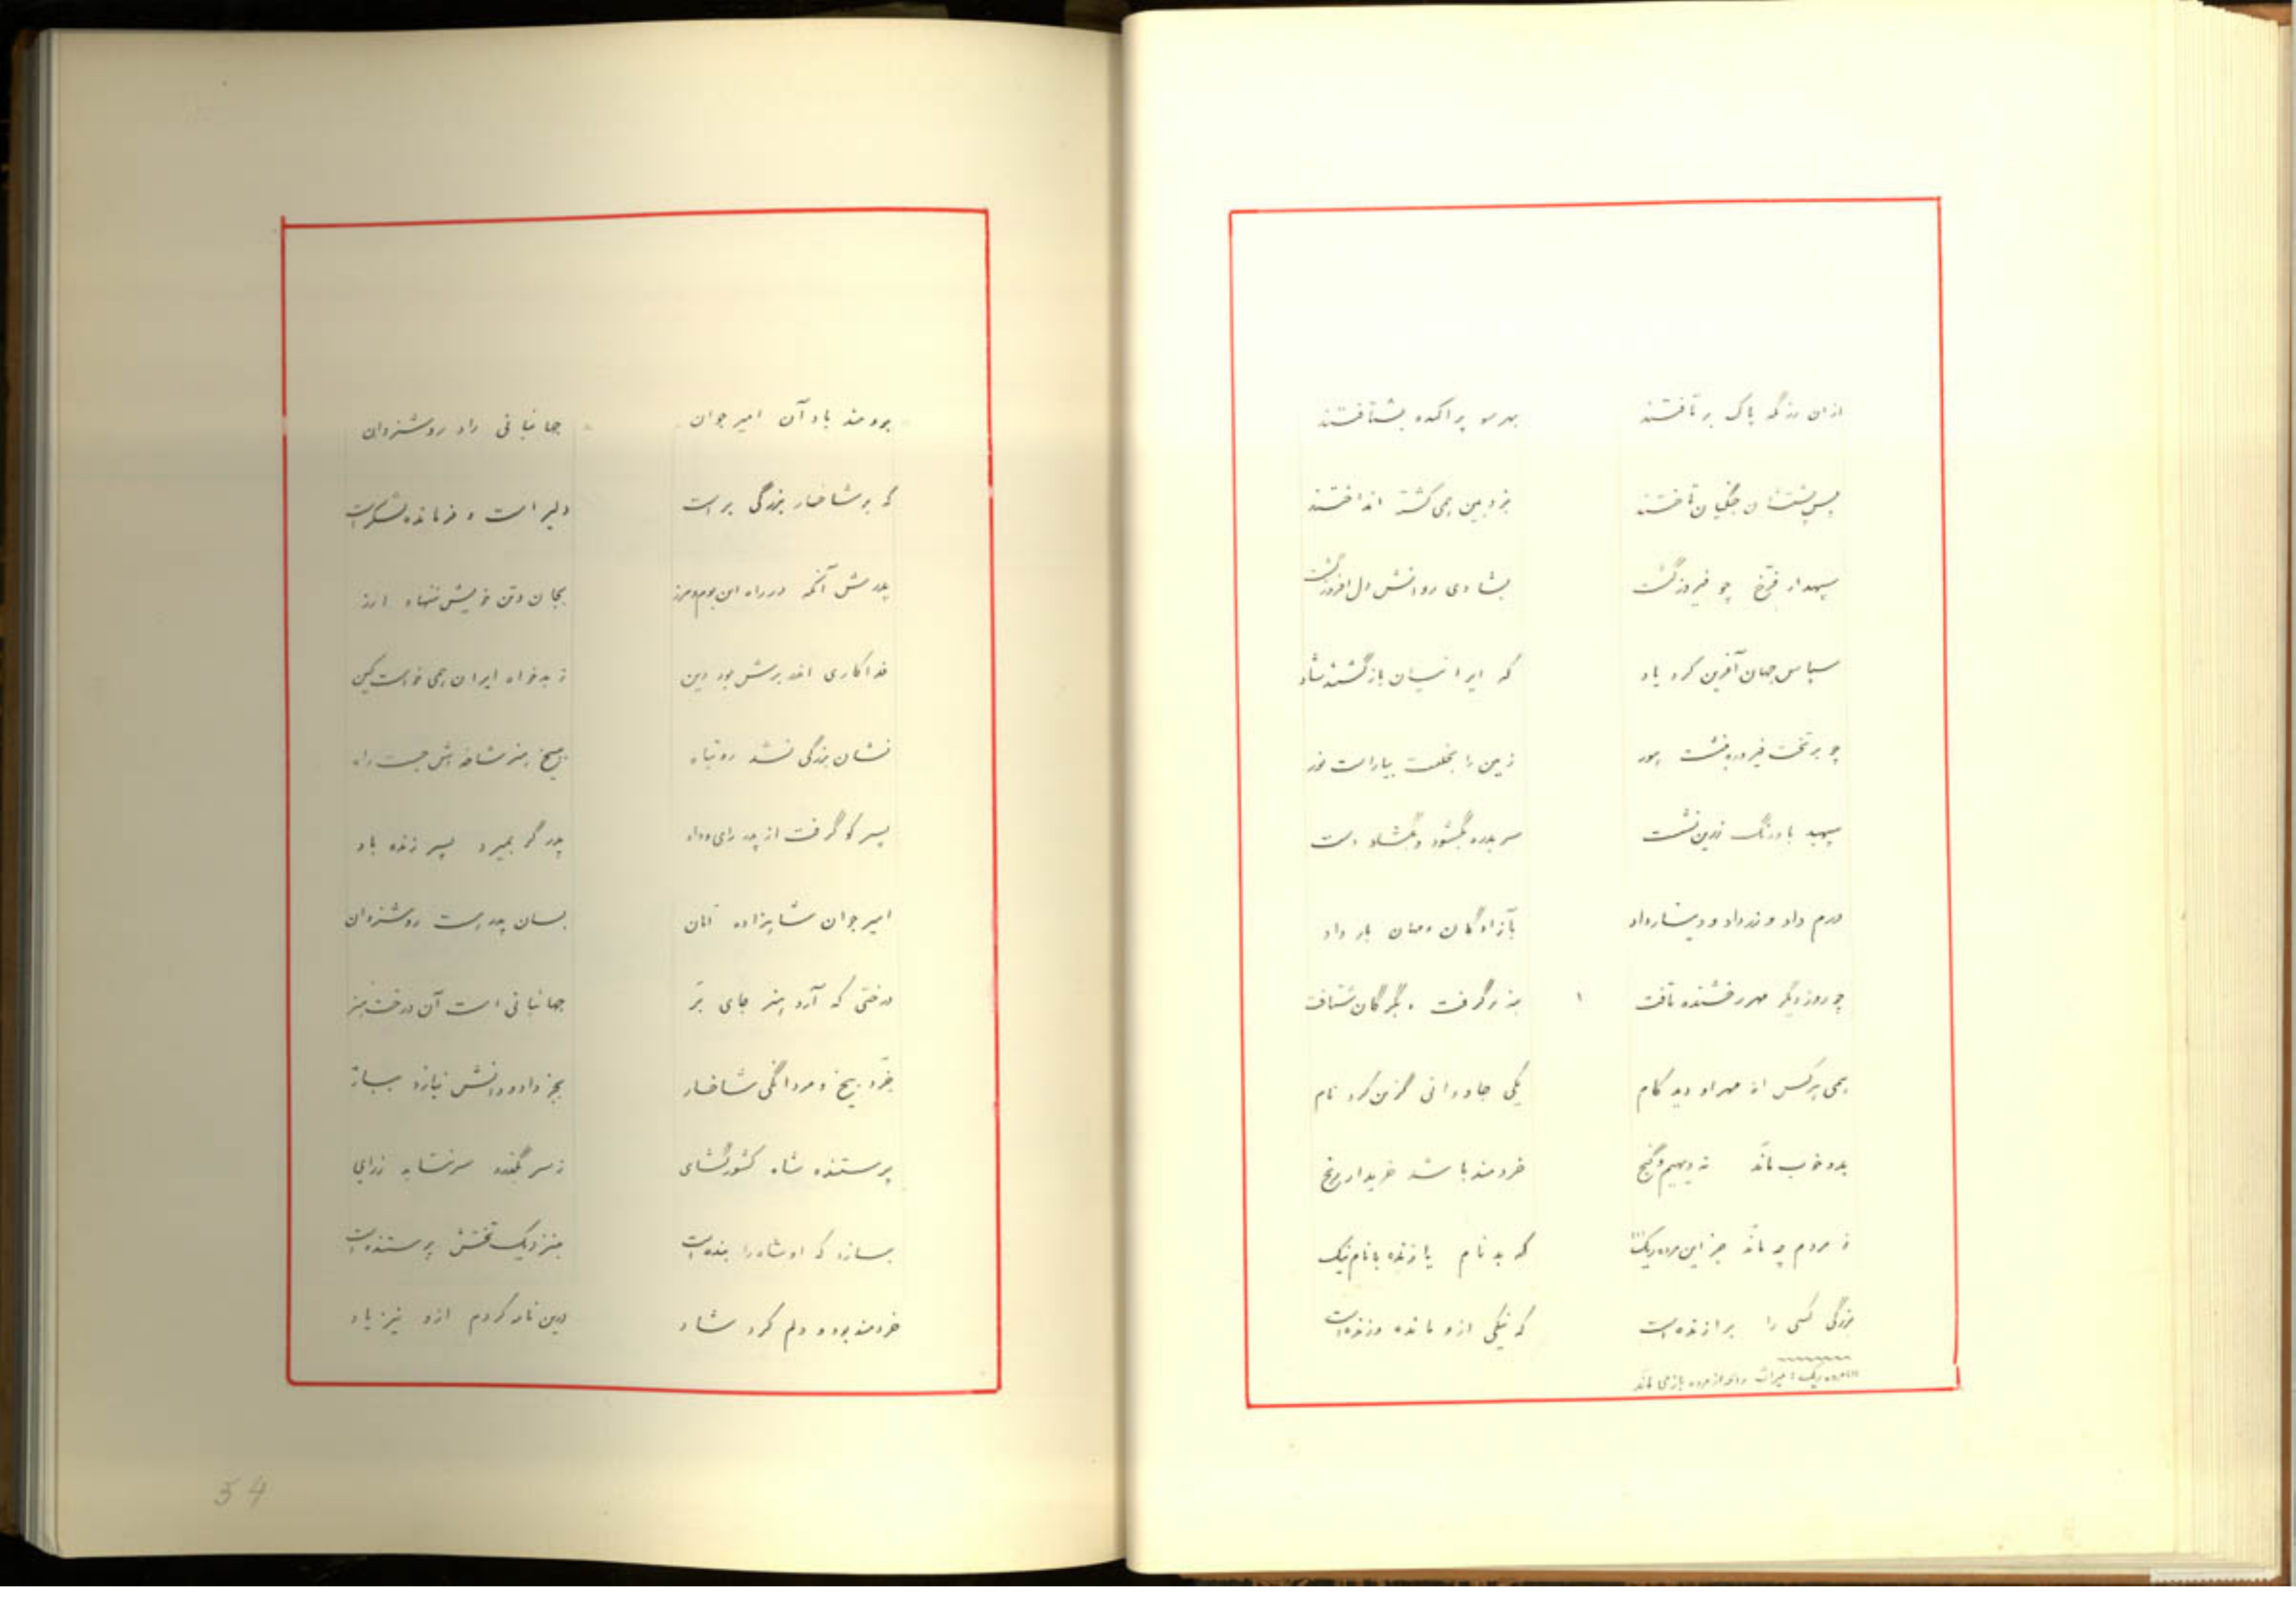 ازان رزمگه پاک برتافتند بهر سو پراکنده بشتافتند
پس پشتشان جنگیان تاختند بزوبین همی کشته انداختند
سپهدار فرّخ چو فیروز گشت بشادی روانش دل افروز گشت
سپاس جهان آفرین کرد یاد که ایرانیان بازگشتند شاد
چو بر تخت فیروزه بنشست هور زمین را بخلعت بیاراست نور
سپهبد باورنگ زرین نشست سر بدره بگشود و بگشاد دست
درم داد و زر داد و دینار داد بآزادگان و مهان بار داد
چو روز دگر مهر رخشنده تافت بنه برگرفت و بگرگان شتافت
همی هر کس از مهر او دید کام یکی جاودانی گزین کرد نام
بد و خوب ماند نه دیهیم و گنج خردمند باشد خریدار رنج
ز مردم چه ماند جز این مرده‌ریک (۱) که بد نام یا زنده با نام نیک
بزرگی کسی را برازنده است که نیکی ازو مانده و زنده است
(۱) مرده ریک: میراث و آنچه از مرده باز می ماند
برومند باد آن امیر جوان جهانبانی راد روشنروان
که بر شاخسار بزرگی بر است دلیر است و فرمانده لشکر است
پدرش آنکه در راه این بوم و مرز بجان و تن خویش ننهاد ارز
فداکاری اندر برش بود دین ز بدخواه ایران همی خواست کین
نشان بزرگی نشد رو تباه ببیخ هنر شاخه اش جست راه
پسر کو گرفت از پدر رای و داد پدر گر بمیرد پسر زنده باد
امیر جوان شاهزاده امان بسان پدر هست روشنروان
درختی که آرد هنر جای بر جهانبانی است آن درخت هنر
خرد بیخ و مردانگی شاخسار بجز داد و دانش نیارد ببار
پرستنده شاه کشورگشای ز سر بگذرد سر نتابد ز رای
بسازد که او شاه را بنده است بنزدیک تختش پرستنده است
خردمند بود و دلم کرد شاد درین نامه کردم ازو نیز یاد
54